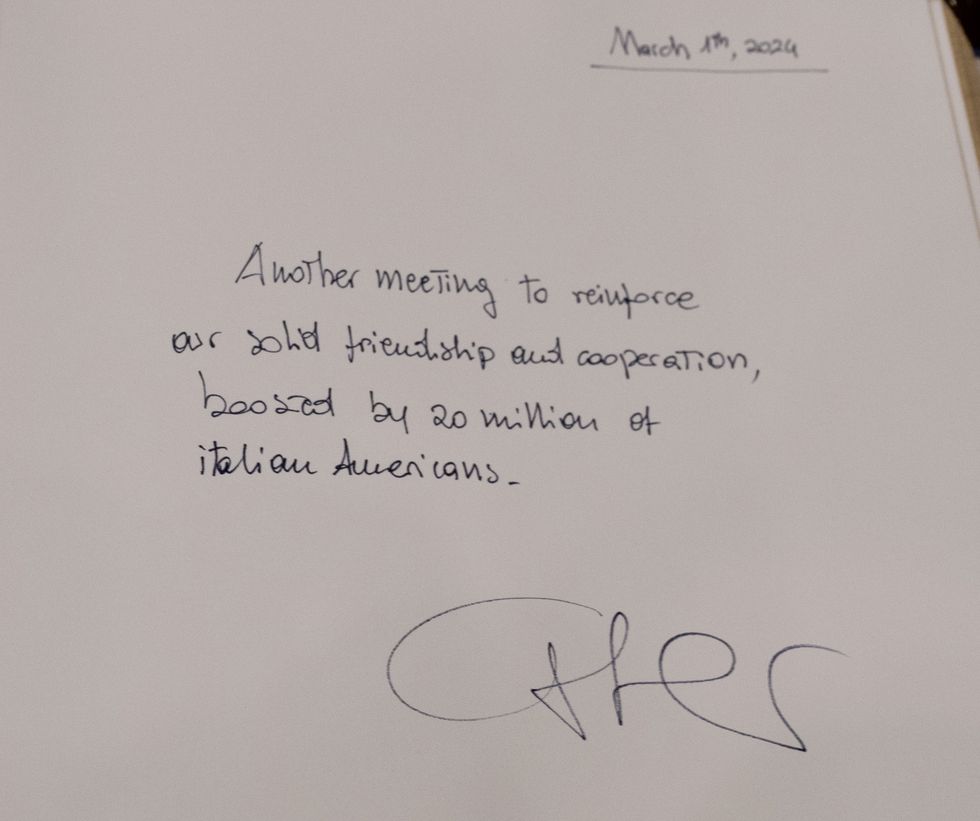 March 1th, 2024
Another meeting to reinforce
our solid friendship and cooperation,
boosted by 20 million of
italian Americans.